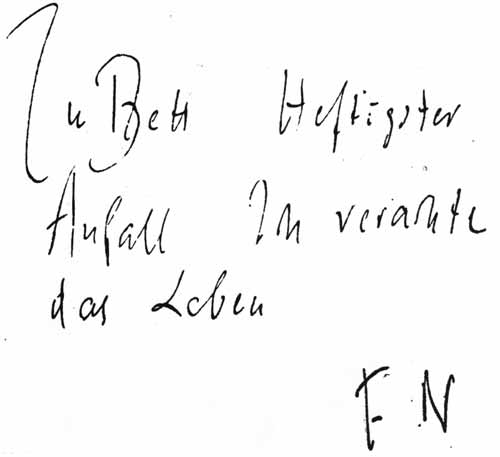 Zu Bett Heftigster
Anfall Ich verachte
das Leben
F N